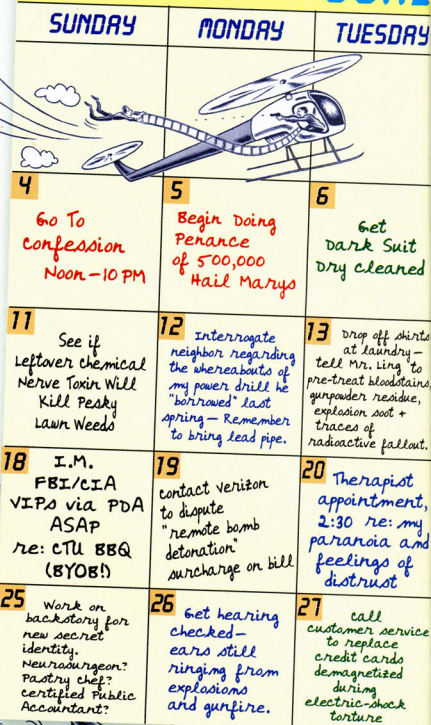 SUNDAY
MONDAY
TUESDAY
4
Go To
Confession
Noon–10 PM
5
Begin Doing
Penance
of 500,000
Hail Marys
6
Get
Dark Suit
Dry Cleaned
11
See if
Leftover Chemical
Nerve Toxin Will
Kill Pesky
Lawn Weeds
12
Interrogate
neighbor regarding
the whereabouts of
my power drill he
"borrowed" last
spring — Remember
to bring lead pipe.
13
Drop off shirts
at laundry —
tell Mr. Ling to
pre-treat bloodstains,
gunpowder residue,
explosion soot +
traces of
radioactive fallout.
18
I.M.
FBI/CIA
VIPs via PDA
ASAP
re: CTU BBQ
(BYOB!)
19
contact verizon
to dispute
"remote bomb
detonation"
surcharge on bill
20
Therapist
appointment,
2:30 re: my
paranoia and
feelings of
distrust
25
Work on
backstory for
new secret
identity.
Neurosurgeon?
Pastry chef?
Certified Public
Accountant?
26
Get hearing
checked —
ears still
ringing from
explosions
and gunfire.
27
call
customer service
to replace
credit cards
demagnetized
during
electric-shock
torture